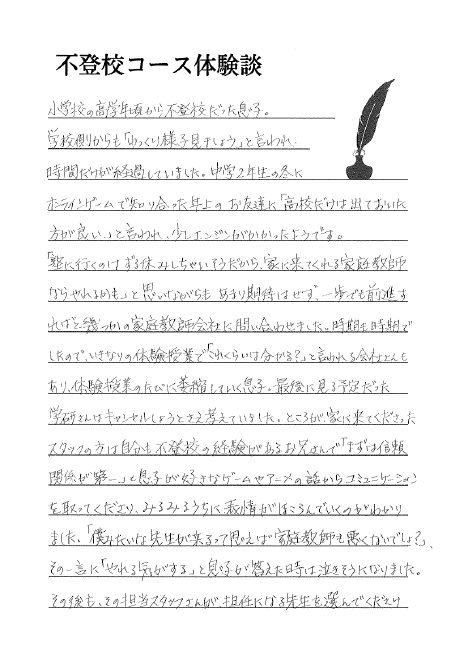 不登校コース体験談
小学校の高学年頃から不登校だった息子。
学校側からも「ゆっくり様子見ましょう」と言われ、
時間だけが経過していました。中学2年生の冬に
オンラインゲームで知り合った年上のお友達に「高校だけは出ておいた
方が良い」と言われ、少しエンジンがかかったようです。
「塾に行くのはずる休みしちゃいそうだから、家に来てくれる家庭教師
ならやれるかも」と思いながらもあまり期待はせず、一歩でも前進す
ればと幾つかの家庭教師会社に問い合わせました。時期も時期で
したので、いきなりの体験授業で「これくらいは分かる?」と言われる会社さんも
あり、体験授業のたびに萎縮していく息子。最後に見る予定だった
学研さんはキャンセルしようとさえ考えていました。ところが、家に来てくださった
スタッフの方は自分も不登校の経験があるお兄さんで「まずは信頼
関係が第一」と息子が好きなゲームやアニメの話からコミュニケーション
を取ってくださり、みるみるうちに表情がほころんでいくのがわかり
ました。「僕みたいな先生が来るって思えば家庭教師も悪くないでしょ?」、
その一言に「やれる気がする」と息子が答えた時は泣きそうになりました。
その後も、その担当スタッフさんが、担任になる先生を選んでくださり